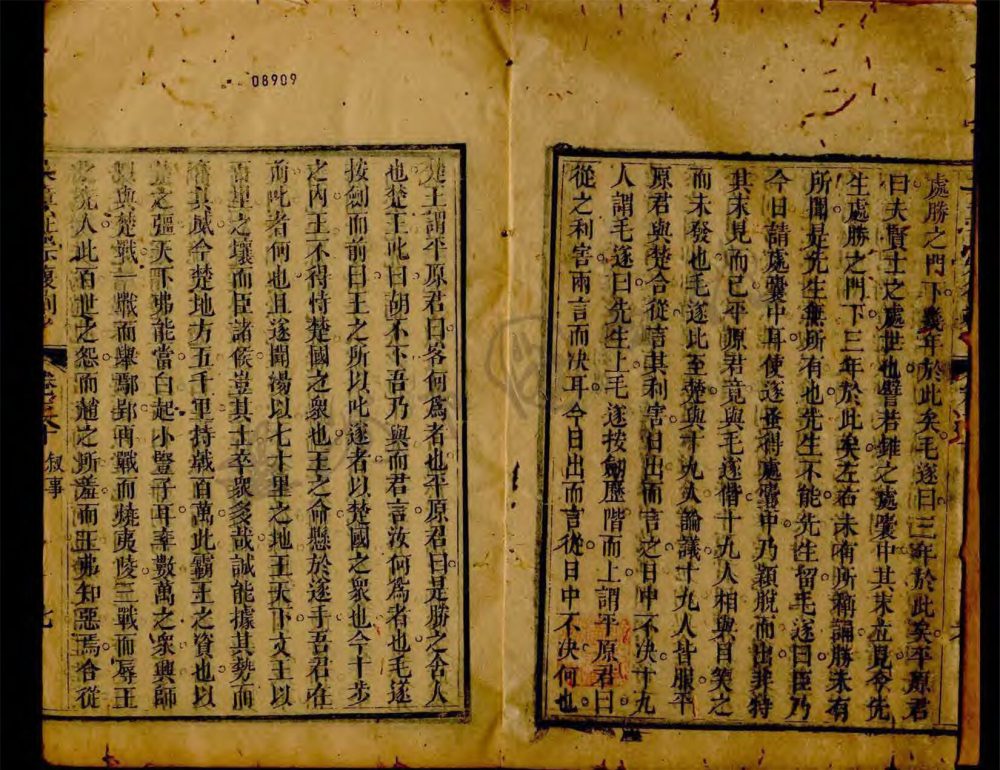 處勝之門下幾年於此矣毛遂曰三年於此矣平原君
曰夫賢士之處世也譬若錐之處囊中其末立見今先
生處勝之門下三年於此矣左右未有所稱誦勝未有
所聞是先生無所有也先生不能先生留毛遂曰臣乃
今日請處囊中耳使遂蚤得處囊中乃穎脫而出非特
其末見而已平原君竟與毛遂偕十九人相與目笑之
而未發也毛遂比至楚與十九人論議十九人皆服平
原君與楚合從言其利害日出而言之日中不决十九
人謂毛遂曰先生上毛遂按劒歷階而上謂平原君曰
從之利害兩言而决耳今日出而言從日中不决何也
楚王謂平原君曰客何爲者也平原君曰是勝之舍人
也楚王叱曰胡不下吾乃與而君言汝何爲者也毛遂
按劍而前曰王之所以叱遂者以楚國之衆也今十步
之內王不得恃楚國之衆也王之命懸於遂手吾君在
前叱者何也且遂聞湯以七十里之地王天下文王以
百里之壤而臣諸侯豈其士卒衆多哉誠能據其勢而
奮其威今楚地方五千里持戟百萬此霸王之資也以
楚之彊天下弗能當白起小豎子耳率數萬之衆興師
以與楚戰一戰而舉鄢郢再戰而燒夷陵三戰而辱王
之先人此百世之怨而趙之所羞而王弗知惡焉合從
叙事
七
08909